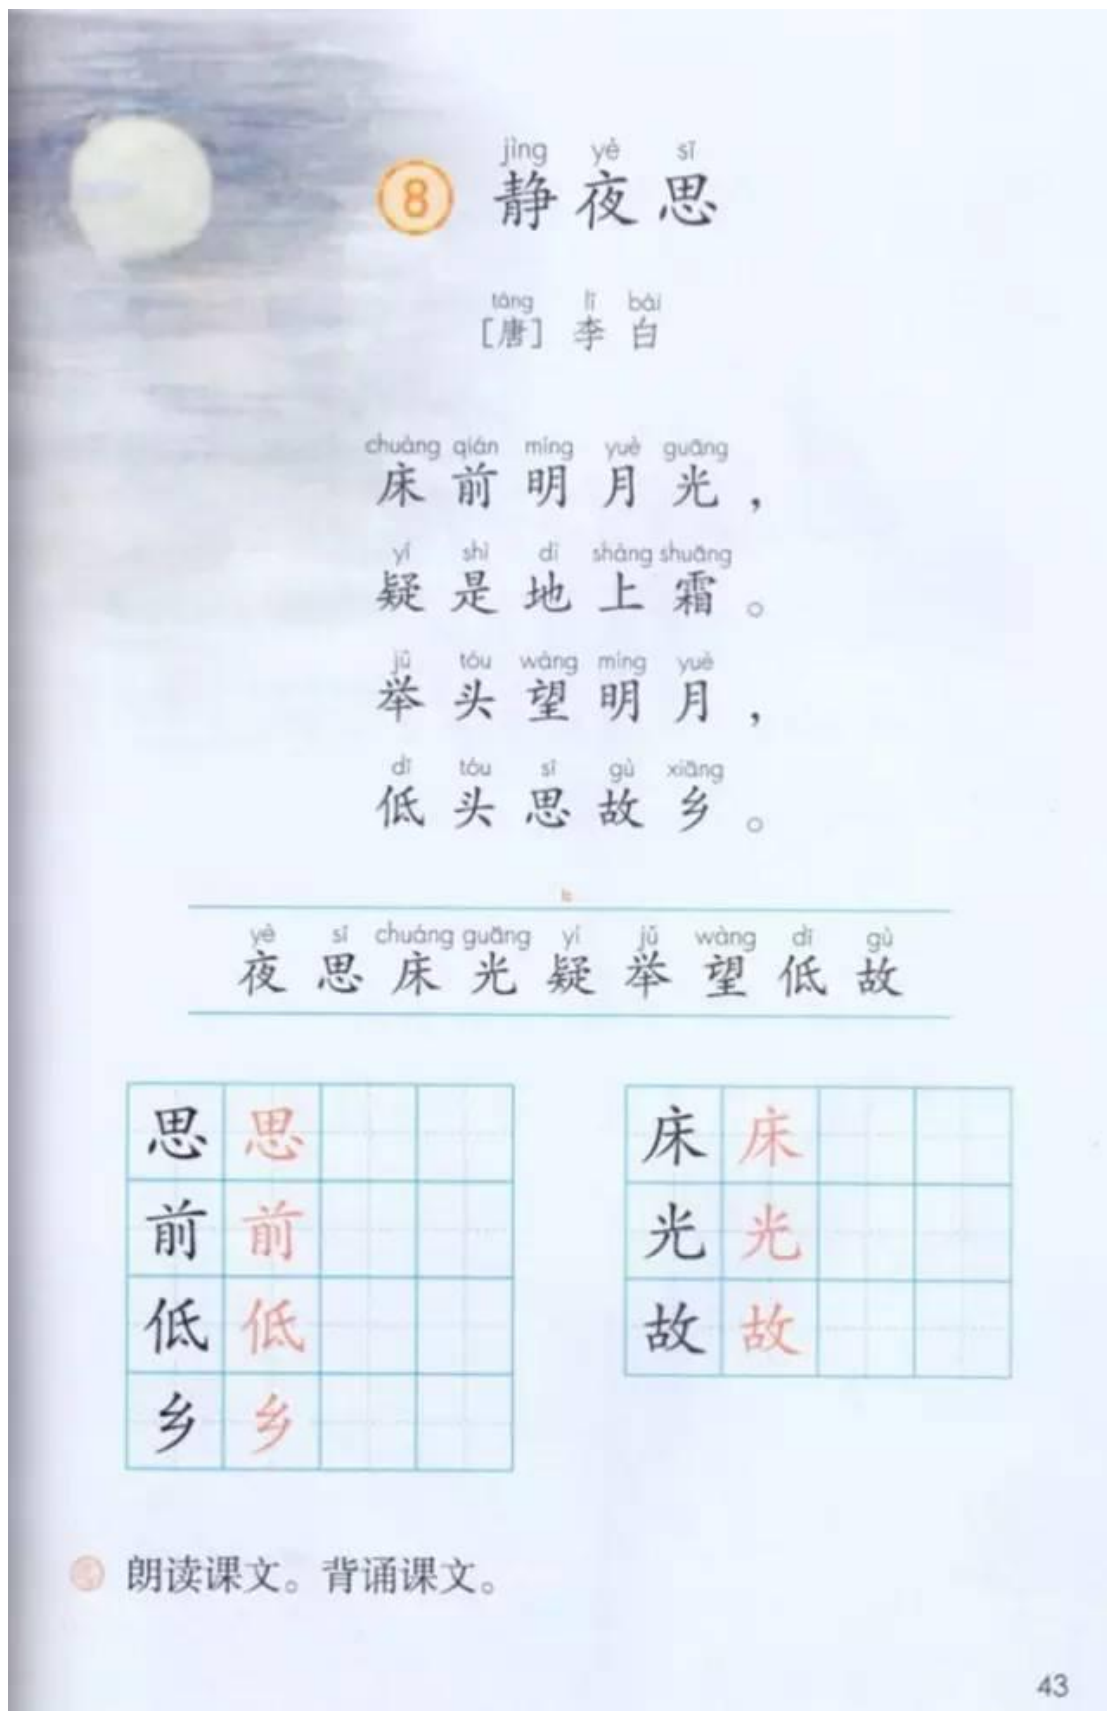 jìng yè sī
8 静夜思
táng lǐ bái
［唐］李白
chuáng qián míng yuè guāng
床前明月光，
yí shì dì shàng shuāng
疑是地上霜。
jǔ tóu wàng míng yuè
举头望明月，
dī tóu sī gù xiāng
低头思故乡。
yè sī chuáng guāng yí jǔ wàng dī gù
夜思床光疑举望低故
思 思 床 床
前 前 光 光
低 低 故 故
乡 乡
朗读课文。背诵课文。
43